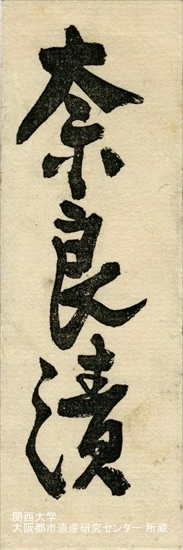 奈良漬
関西大学
大阪都市遺産研究センター 所蔵